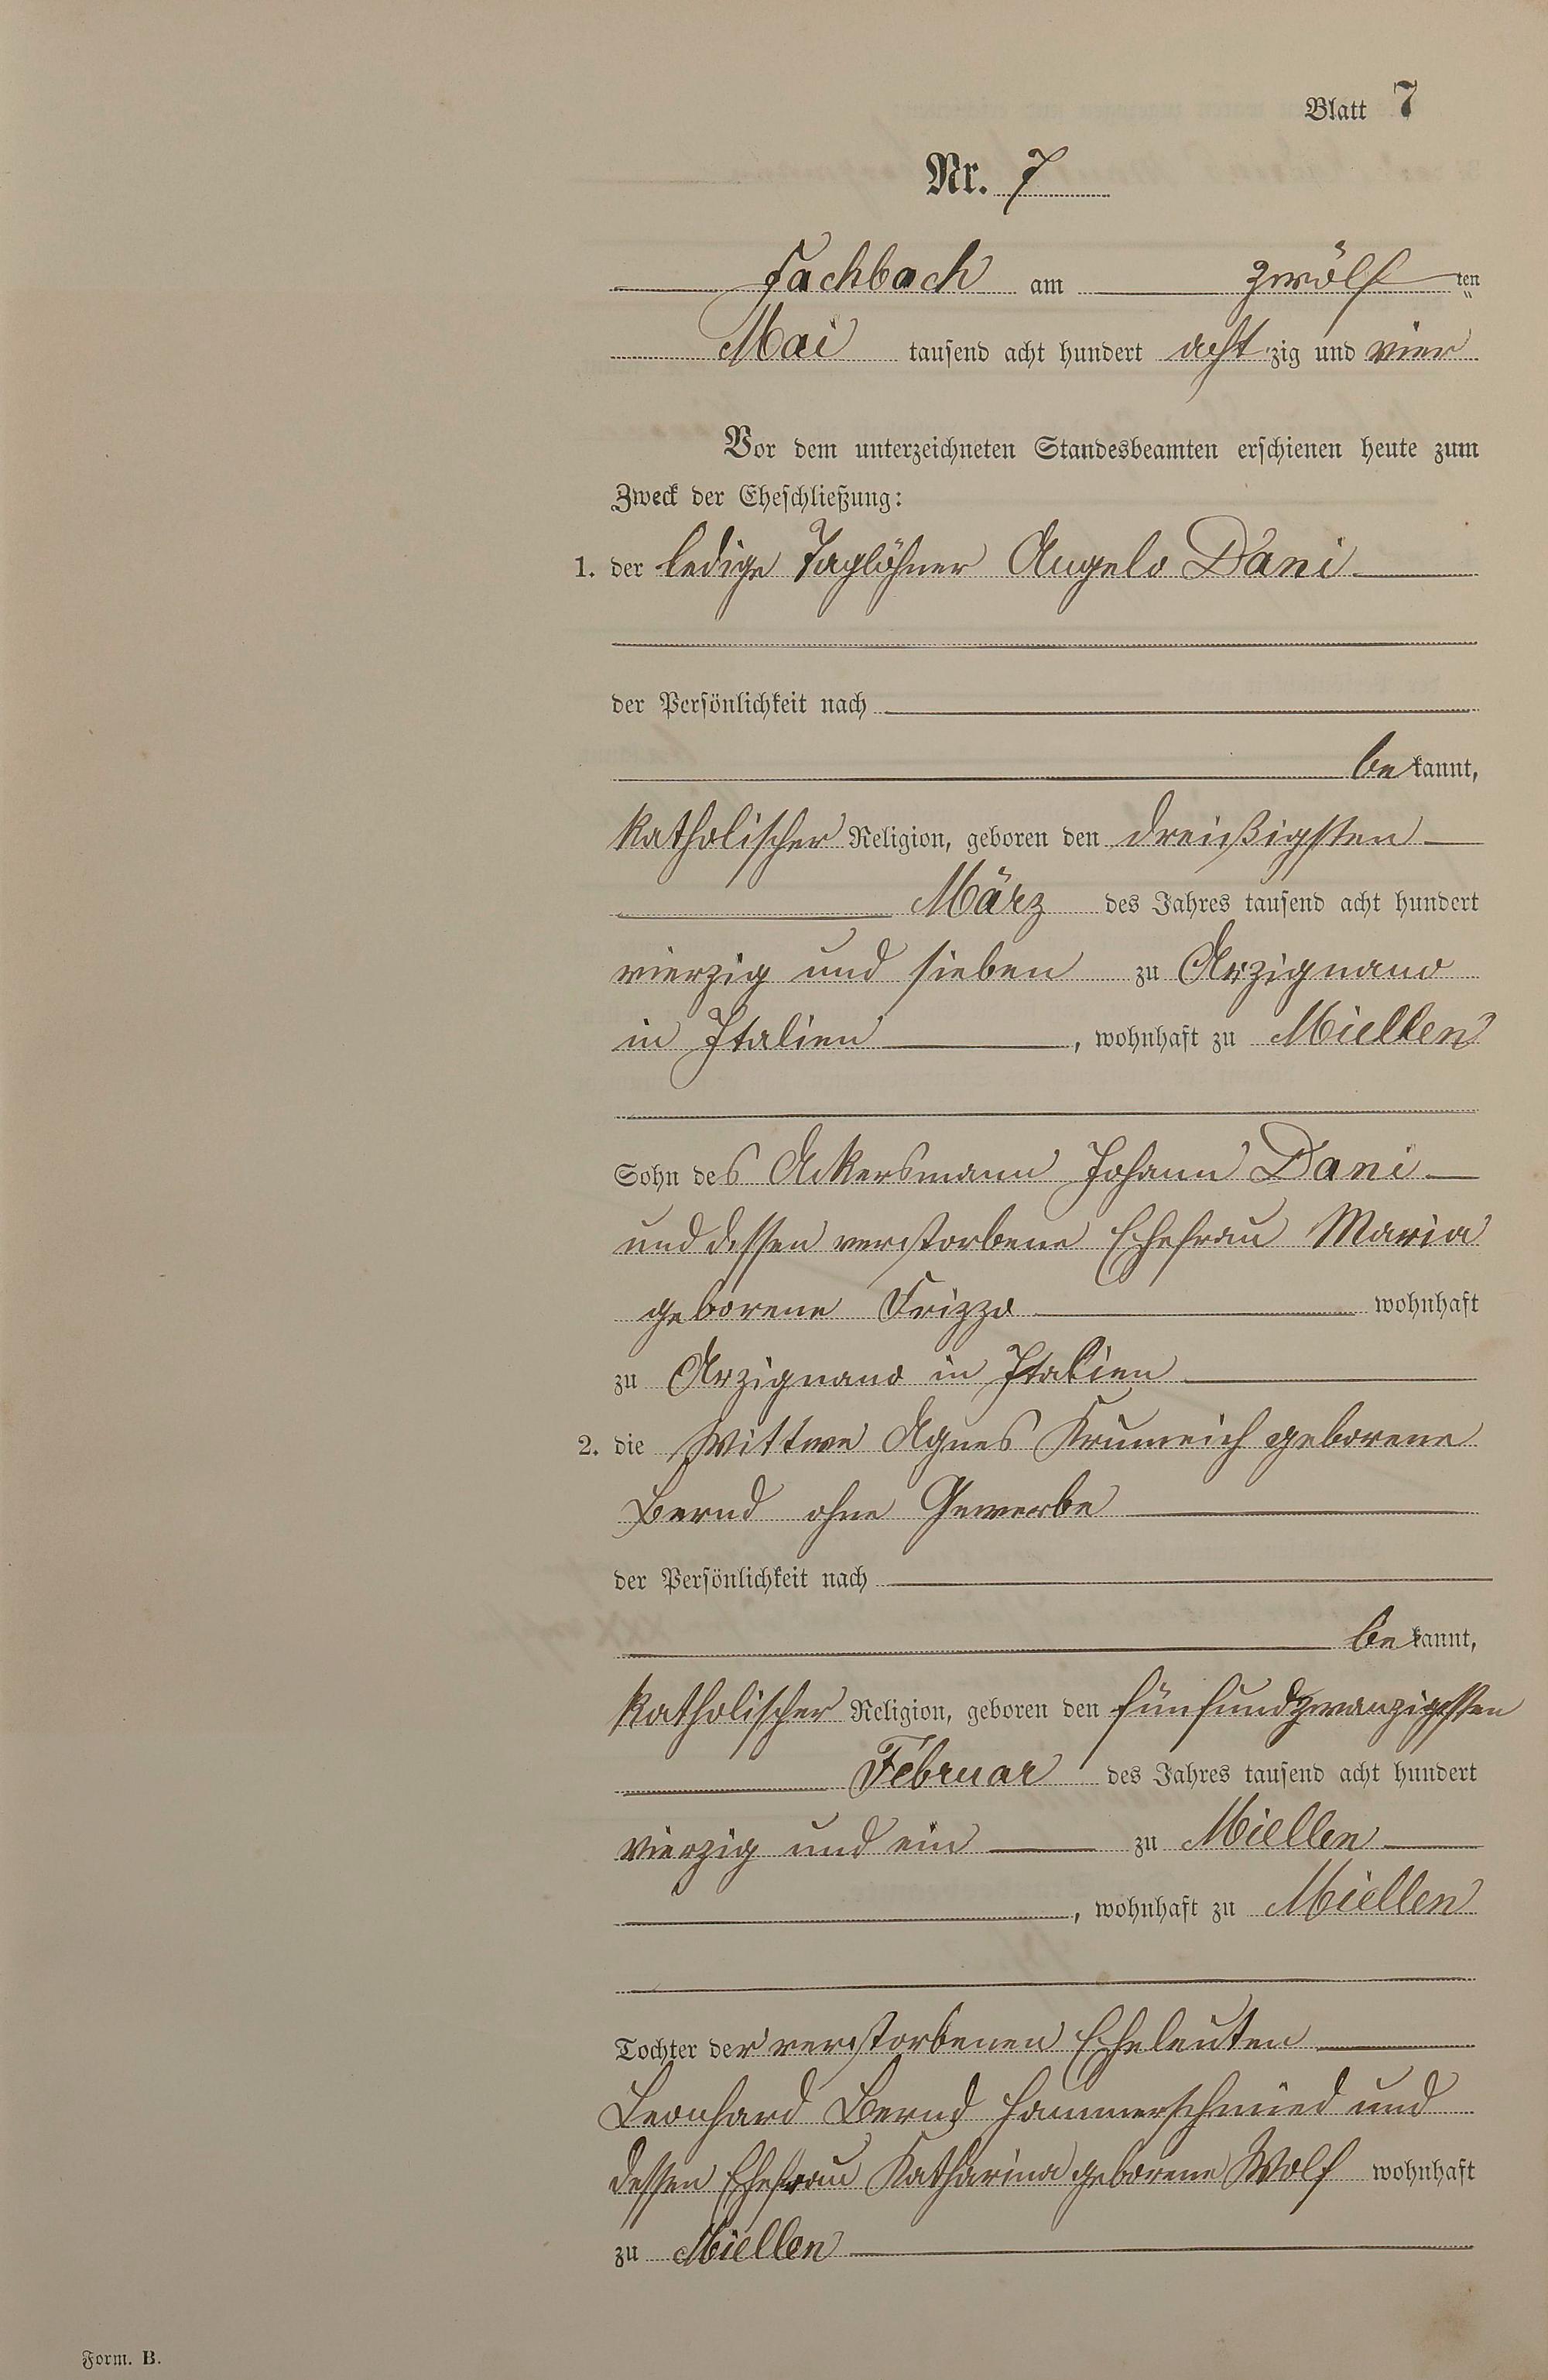 Blatt 7
Nr. 7
Fachbach am zwölf ten
Mai tausend acht hundert acht zig und vier
Vor dem unterzeichneten Standesbeamten erschienen heute zum
Zweck der Eheschließung:
1. der ledige Taglöhner Angelo Dani
der Persönlichkeit nach
be kannt,
katholischer Religion, geboren den dreißigsten
März des Jahres tausend acht hundert
vierzig und sieben zu Arzignano
in Italien, wohnhaft zu Miellen
Sohn des Ackersmann Johann Dani
und dessen verstorbene Ehefrau Maria
geborene Frizzo wohnhaft
zu Arzignano in Italien
2. die Wittwe Agnes Krumeich geborene
Bernd ohne Gewerbe
der Persönlichkeit nach
be kannt,
katholischer Religion, geboren den fünfundzwanzigsten
Februar des Jahres tausend acht hundert
vierzig und ein zu Miellen
, wohnhaft zu Miellen
Tochter der verstorbenen Eheleuten
Leonhard Bernd Hammerschmied und
dessen Ehefrau Katharina geborene Wolf wohnhaft
zu Miellen
Form. B.